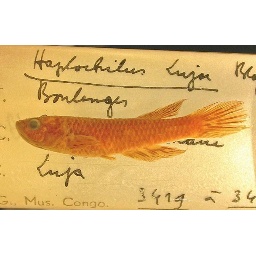 Haplochilus Lujæ Bl
Boulenger
Luja
G., Mus. Congo. 3419 à 34